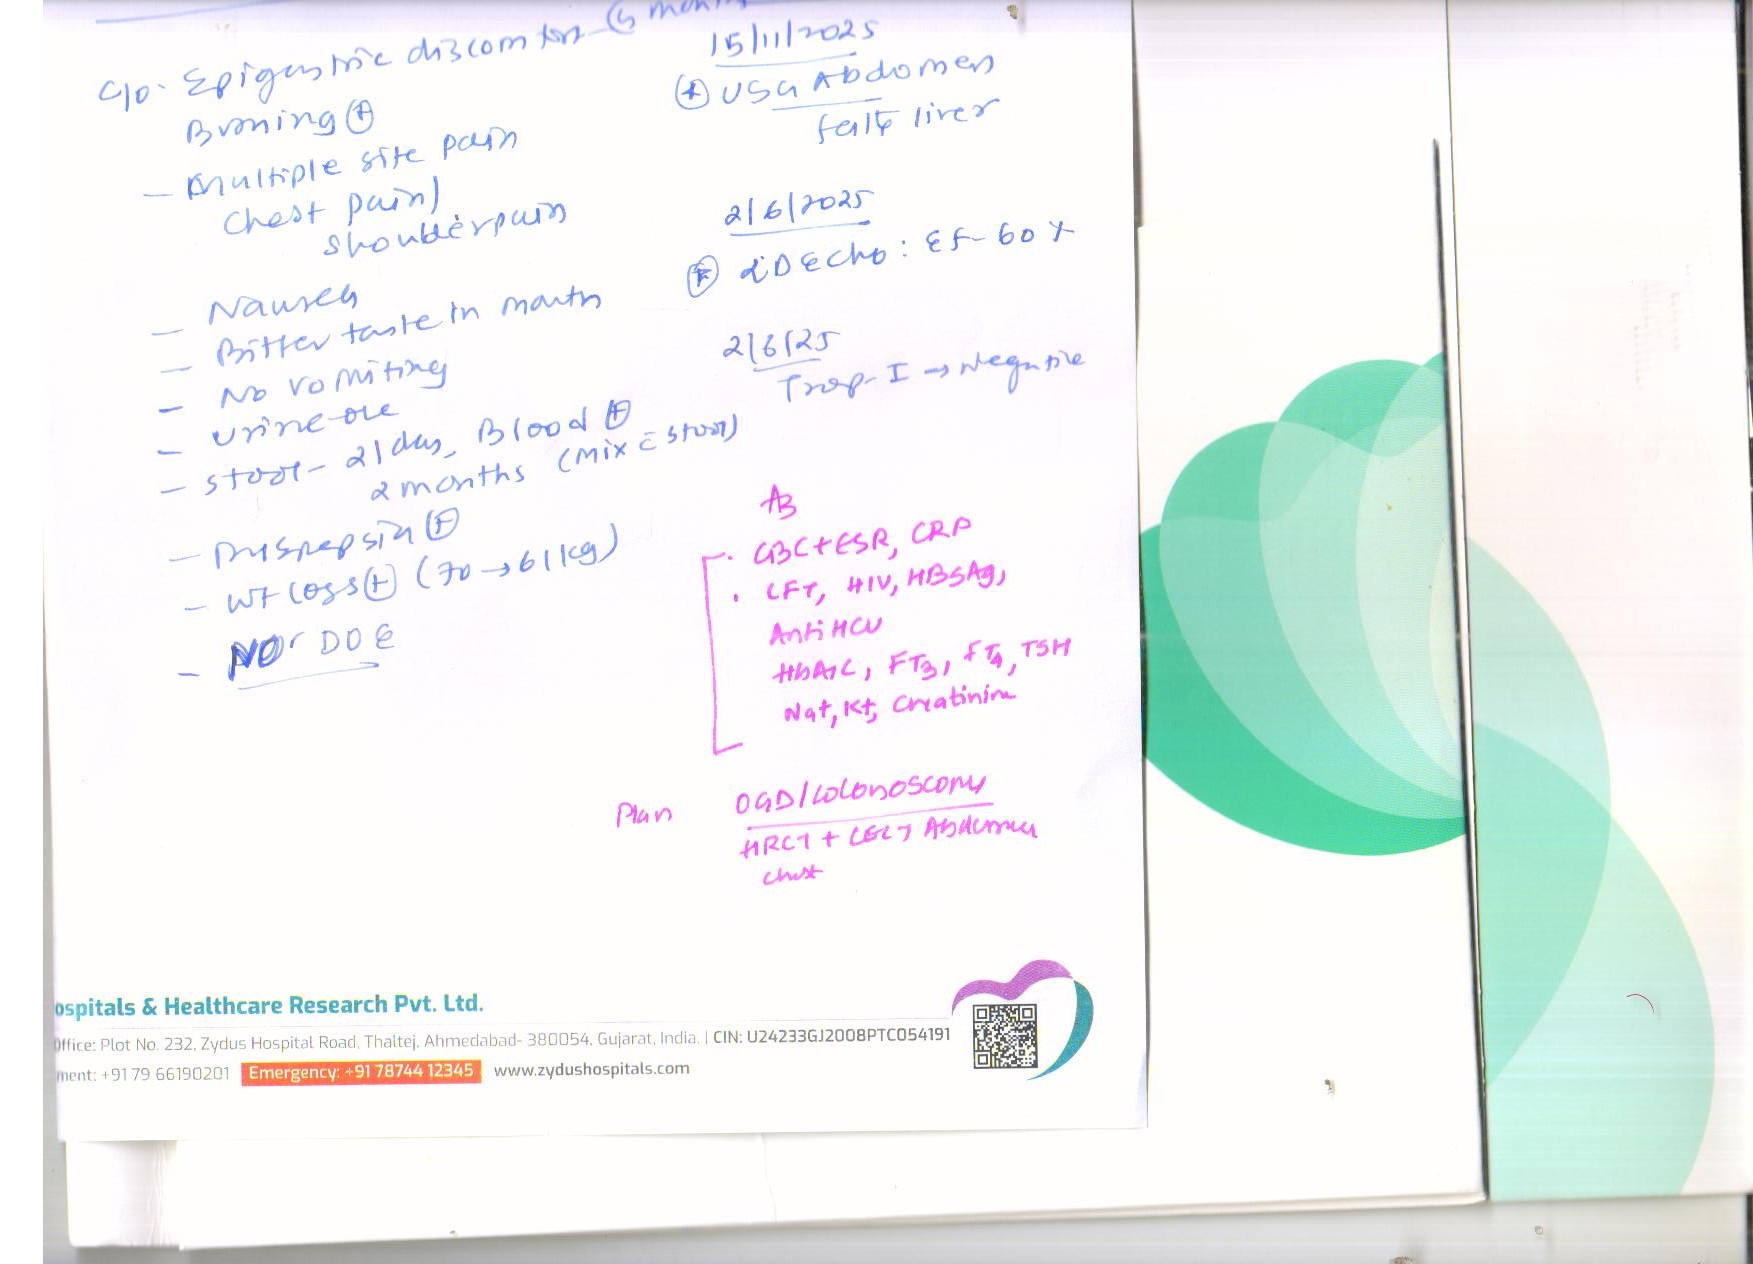 c/o. Epigastric discomfort - 6 month
Burning (+)
- Multiple site pain
Chest pain)
Shoulder pain
- Nausea
- Bitter taste in mouth
- No vomiting
- Urine - ok
- Stool - 2/day, Blood (+)
2 months (mix c̄ stool)
- Dyspepsia (+)
- Wt loss (+) (70 → 61 kg)
- No DOE
15/11/2025
USG Abdomen
fatty liver
2/6/2025
2D Echo: EF - 60%
2/6/25
Trop-I → Negative
CBC + ESR, CRP
LFT, HIV, HBSAg,
Anti HCV
HbA1C, FT3, FT4, TSH
Na+, K+, Creatinine
Plan OGD/Colonoscopy
HRCT + CECT Abdomen
Chest
ospitals & Healthcare Research Pvt. Ltd.
Office: Plot No. 232, Zydus Hospital Road, Thaltej, Ahmedabad- 380054, Gujarat, India. | CIN: U24233GJ2008PTC054191
ment: +91 79 66190201 Emergency: +91 78744 12345 www.zydushospitals.com